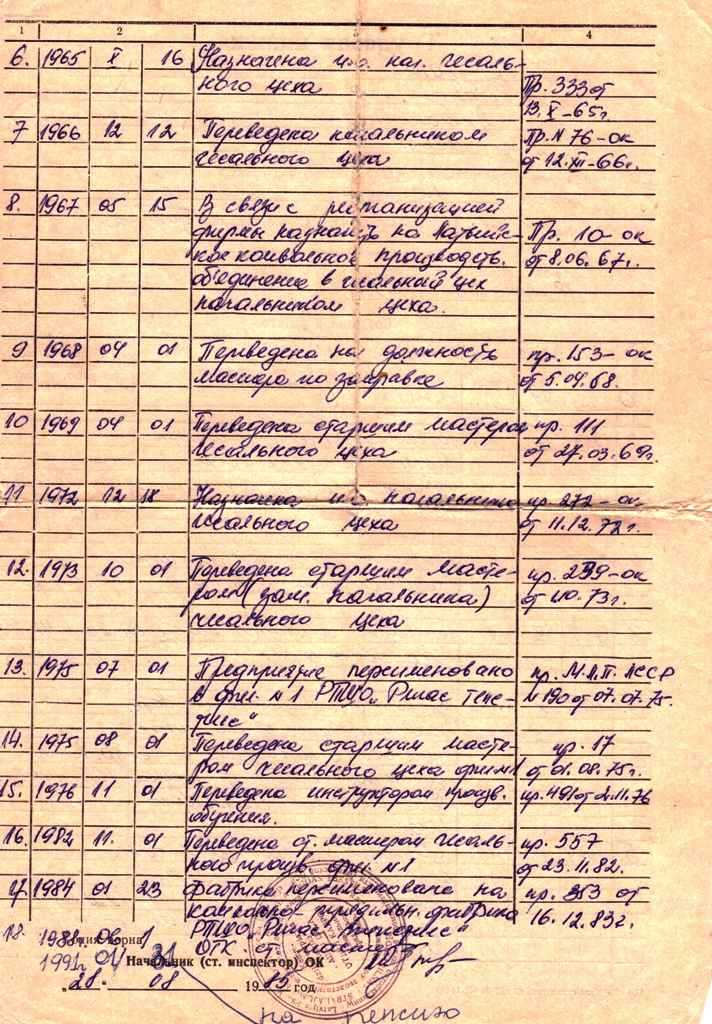 1 2 3 4
6. 1965 X 16 Назначена и.о. нач. чесаль-
ного цеха Пр. 333 от
13. X-65г
7 1966 12 12 Переведена начальником Пр. N 76-ок
чесального цеха от 12.XII-66г.
8. 1967 05 15 В связи с реорганизацией
фирмы назначить на Латвийс-
кое камвольное производств. Пр. 10-ок
объединение в чесальный цех от 8.06.67г.
начальником цеха.
9 1968 04 01 Переведена на должность пр. 153-ок
мастера по заправке от 5.04.68.
10 1969 04 01 Переведена старшим мастером пр. 111
чесального цеха от 27.03.69г.
11 1972 12 18 Назначена и.о. начальника пр. 272-ок
чесального цеха от 11.12.72г.
12. 1973 10 01 Переведена старшим масте- пр. 239-ок
ром (зам. начальника)
чесального цеха
13. 1975 07 01 Предприятие переименовано пр. М.Л.П. ЛССР
в фил. N1 РТПО "Ригас Текс- N 190 от 07.07.75.
тилс"
14. 1975 08 01 Переведена старшим масте- пр. 17
ром чесального цеха от 01.08.75г.
15. 1976 11 01 Переведена инструктором произв. пр. 491 от 2.11.76
обучения.
16. 1982 11. 01 Переведена ст. мастером чесаль- пр. 557
ного произв. фил. N1 от 23.11.82.
17. 1984 01 23 фабрика переименована на пр. 353 от
камвольно-прядильн. фабрика 16.12.83г.
РТПО "Ригас текстилс"
18. 1988г. 06 1 ОТК ст. мастер
1991г 01 31 Начальник (ст. инспектор) ОК
"28. 08 1989 год
на пенсию